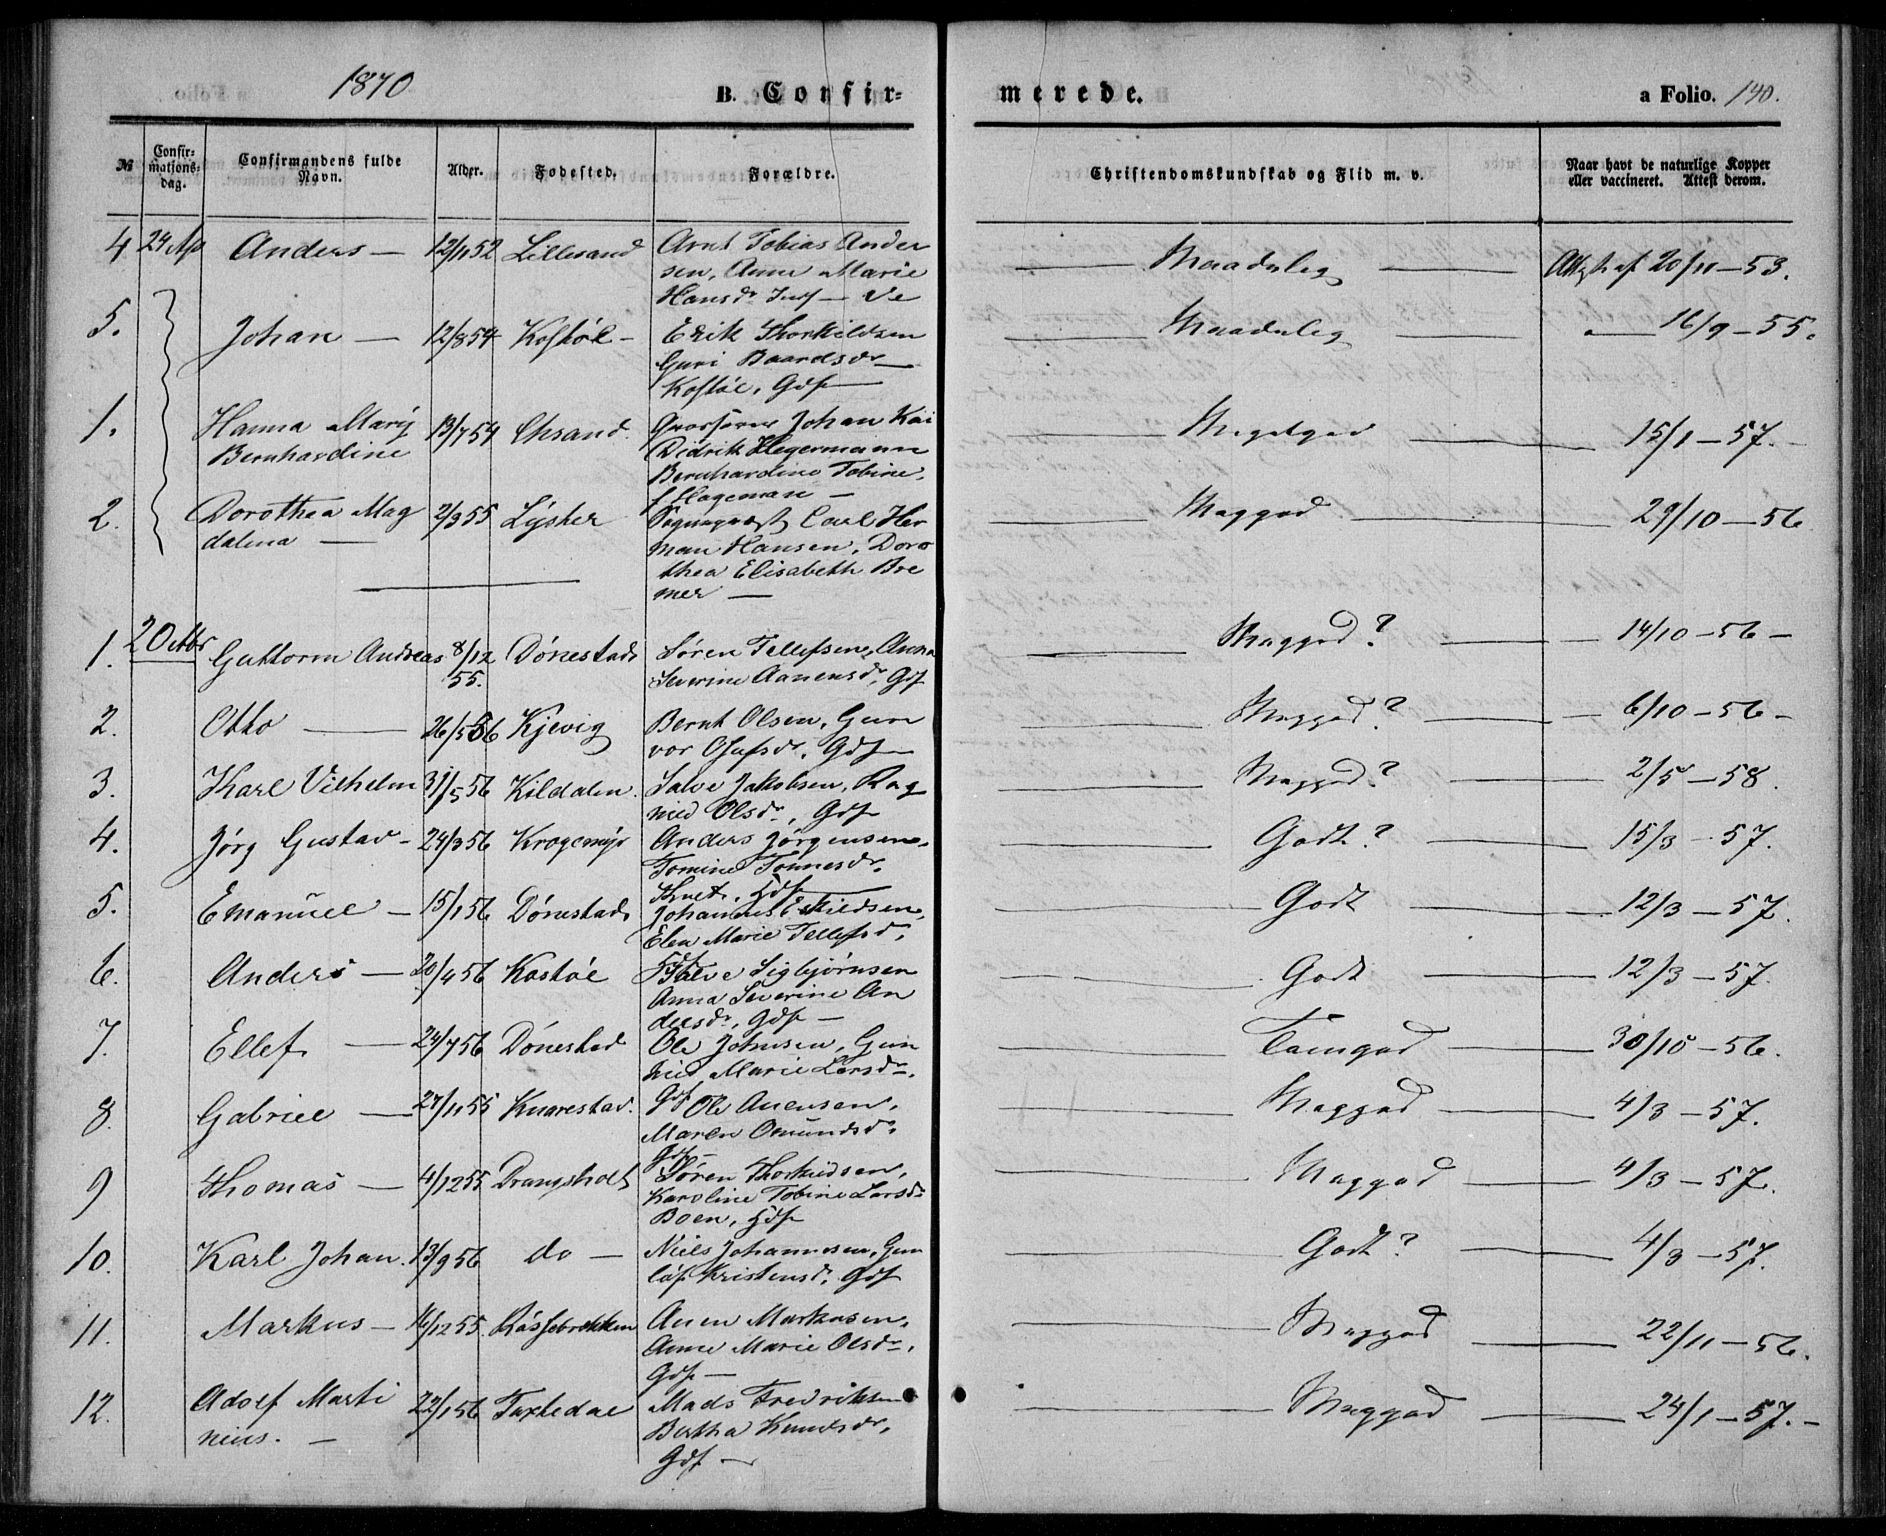 1870
B. Confir=
merede.
a Folio. 140.
№
Confir=
mations=
dag.
Confirmandens fulde
Navn.
Alder.
Fødested.
Forældre.
Christendomskundskab og Flid m. v.
Naar havt de naturlige Kopper
eller vaccineret. Attest derom.
4 24 Anders — 12/11 52 Lillesand Arnt Tobias Ander
sen, Anne Marie
Hansdr
Maadelig 20/11 — 53.
5. Johan — 12/8 54 Kostøl — Erik Thorkildsen
Guri Baardsdr —
Kostøl, Gdf —
Maadelig 16/9 — 55.
1. Hanna Marij
Bernhardine 13/7 54 Chsand. Grosserer Johan Kai
Didrik Hegermann
Bernhardine Tobine,
f Hageman —
Megetgod 15/1 — 57. —
2. Dorothea Mag
dalena — 2/9 55 Lyster Sognepræst Carl Her
man Hansen, Doro
thea Elisabeth Bre
mer —
Meggod 29/10 — 56
1. 2 Octbr Guttorm Andreas 8/12
55. Dønestad Søren Tellefsen, Anna
Severine Aanensdr, Gdf
Meggod? 14/10 — 56 —
2. Otto — 26/5 56 Kjevig Bernt Olsen, Gun
vor Olufsdr, Gdf —
Meggod? 6/10 — 56 —
3. Karl Vilhelm 31/5 56 Kildalen. Salve Jakobsen, Rag
nild Olsdr, Gdf
Meggod? 2/5 — 58.
4. Jørg Gustav — 24/3 56 Kragemyr Anders Jørgensen,
Tomine Tønnesdr,
Hdf
Godt? 15/3 — 57.
5. Emanuel — 15/1 56 Dønestad Johannes Eskildsen,
Elen Marie Tellefsdr,
Gdf
Godt 12/3 — 57.
6. Anders — 20/4 56 Kostøl Salve Sigbjørnsen
Anna Severine An
dersdr, Gdf —
Godt 12/3 — 57.
7. Ellef — 24/7 56 Dønestad Ole Johnsen, Gun
hild Marie Larsdr.
Gdf
Temgod 30/10 — 56.
8. Gabriel — 27/11 55 Knarestad. Ole Anensen,
Maren Omundsdr,
Gdf —
Meggod 4/3 — 57.
9 Thomas — 4/12 55 Drangsholt Søren Thorkildsen,
Karoline Tobine Larsdr
Boen, Hdf
Meggod 4/3 — 57.
10. Karl Johan. 13/9 56 do — Niels Johannesen, Gun
løf Kristensdr, Gdf
Godt? 4/3 — 57.
11. Markus — 16/12 55. Røssebrekken Anen Markusen,
Anne Marie Olsdr,
Gdf —
Meggod 22/11 — 56.
12. Adolf Marti
nius. — 22/1 56 Tostedal Mads Fredriksen
Bertha Knudsdr,
Gdf —
Meggod 24/1 — 57. —